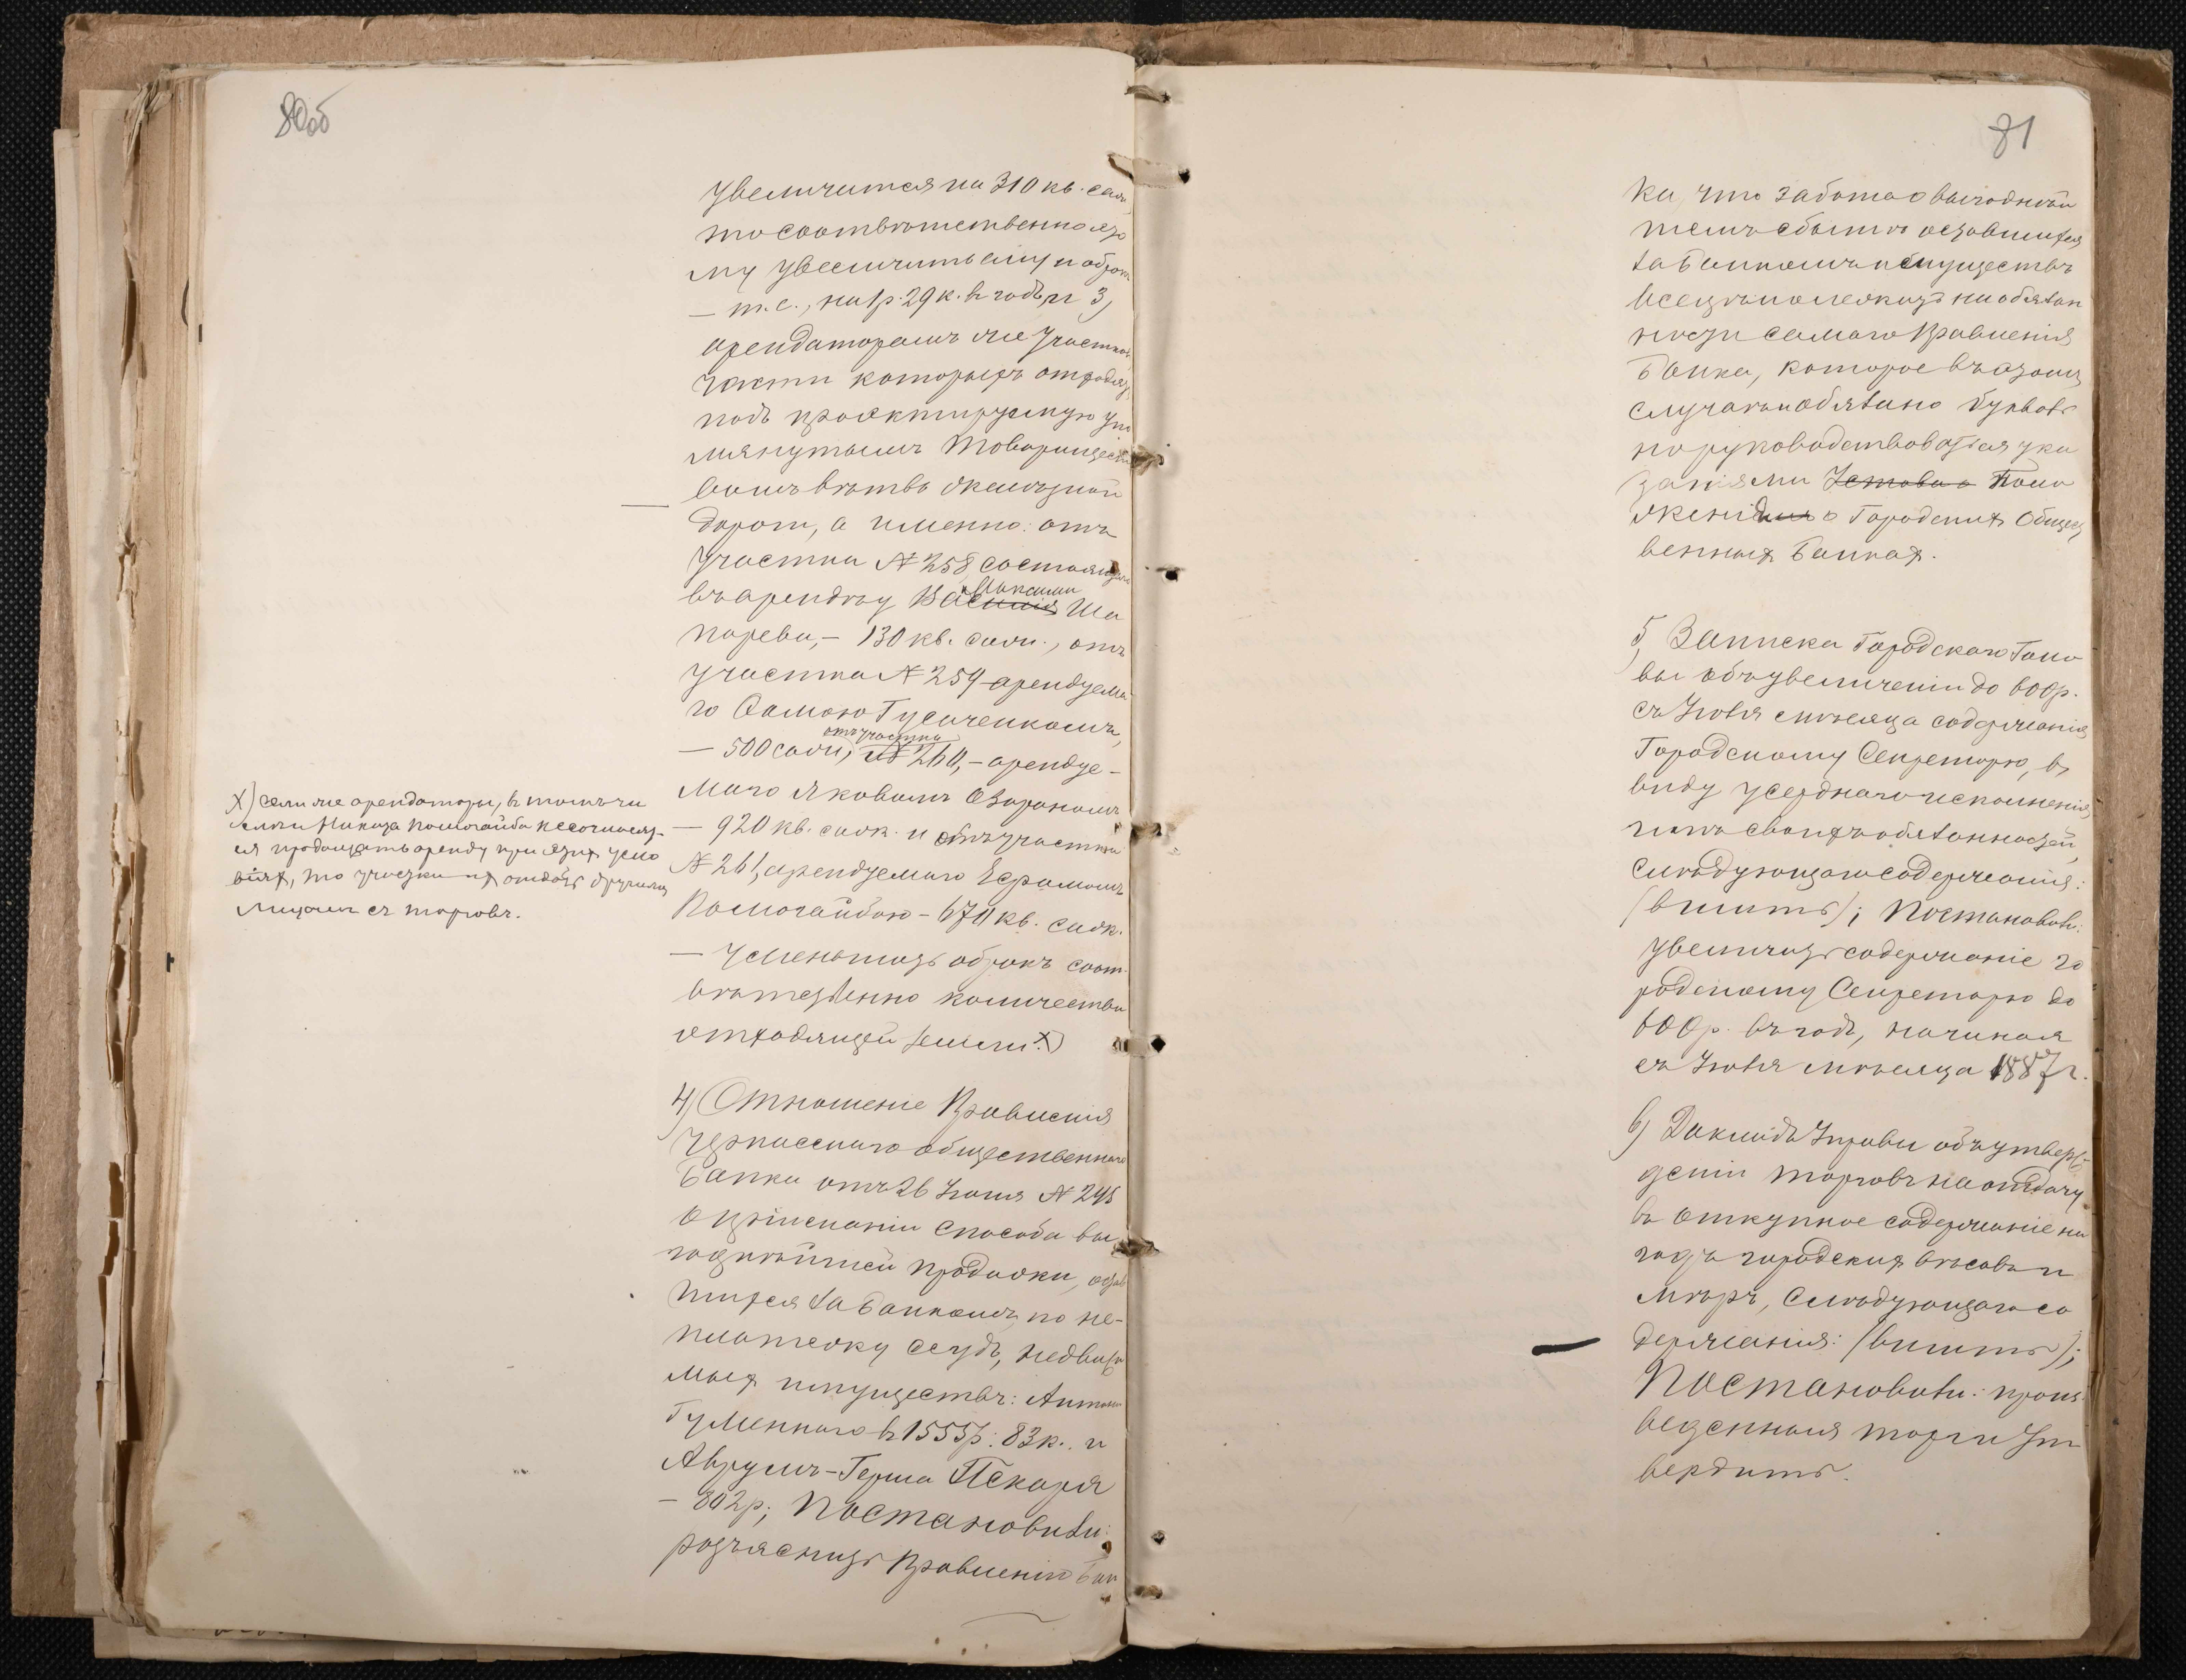 80об
увеличится на 310 кв. саж.
то соотвѣтственно это
му увеличить ему и оброк
— т. е., на 1 р. 29 к. въ годъ, и 3)
арендаторамъ же участков
части которыхъ отходятъ
подъ проэктируемую упо
мянутымъ Товариществ
вомъ вѣтвь желѣзной
дороги, а именно: отъ
участка № 258, состоящаго
въ арендѣ у Василія Максима Ша
порева, — 130 кв. саж., отъ
участка № 259 арендуема
го Фомою Гусиченкомъ,
— 500 саж., отъ участка № 260, — арендуе-
маго Яковомъ
— 920 кв. саж. и отъ участка
№ 261, арендуемаго Ефимомъ
Помогайбою — 670 кв. саж.
— уменьшить оброкъ соот-
вѣтственно количеству
отходящей земли. х)
х) если же арендаторы, въ томъ чи
слѣ и Никита Помогайба не согласят-
ся продолжать аренду при этих усло
віях, то участки их отдать другимъ
лицам съ торговъ.
4) Отношеніе Правленія
Черкасскаго общественнаго
Банка отъ 26 Іюня № 245
о пріисканіи способа вы
годнѣйшей продажи, остав
шихся за Банкомъ, по не-
платежу ссудъ, недвижи
мых имуществъ: Антона
Гуменнаго въ 1555 р. 83 к. и
Аврумъ-Герша Пскаря
— 802 р.; Постановили:
разъяснить Правленію Бан
81
ка, что забота о выгоднѣй
шемъ сбытѣ оставшихся
за Банкомъ имуществъ
всецѣло лежитъ на обязан
ности самаго Правленія
Банка, которое въ этомъ
случаѣ и обязано букваль
но руководствоваться ука
заніями Устава о Поло
женія о Городских Общест
венных Банках.
5) Записка Городскаго Голо
вы объ увеличеніи до 600 р.
съ Іюля мѣсяца содержанія
Городскому Секретарю, въ
виду усерднаго исполненія
имъ своихъ обязанностей,
слѣдующаго содержанія:
(вшить); Постановили:
увеличить содержаніе го
родскому Секретарю до
600 р. въ годъ, начиная
съ Іюля мѣсяца 1887 г.
6) Докладъ Управы объ утверж
деніи торговъ на отдачу
въ откупное содержаніе на
годъ городских вѣсовъ и
мѣръ, слѣдующаго со
держанія: (вшить);
Постановили: произ
веденныя торги ут
вердить.